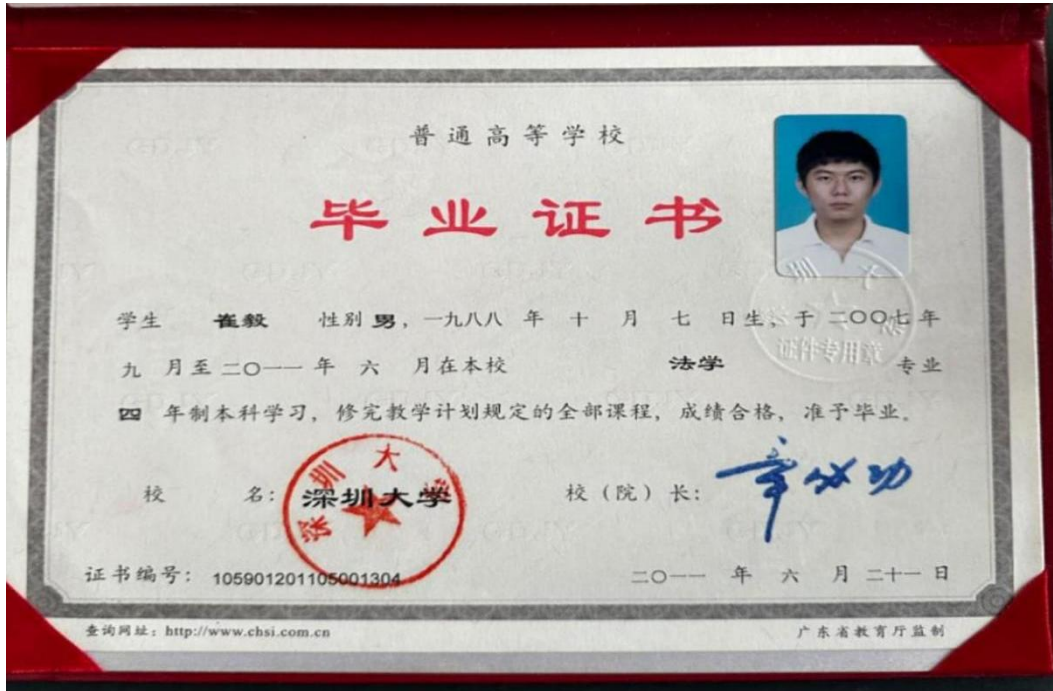 普通高等学校
毕业证书
学生 崔毅 性别 男，一九八八 年 十 月 七 日生，于 二〇〇七 年
九 月至 二〇一一 年 六 月在本校 法学 专业
四 年制本科学习，修完教学计划规定的全部课程，成绩合格，准予毕业。
校 名：深圳大学 校（院）长：章必功
证书编号：105901201105001304 二〇一一 年 六 月 二十一 日
查询网址：http://www.chsi.com.cn 广东省教育厅监制
深圳大学
证件专用章